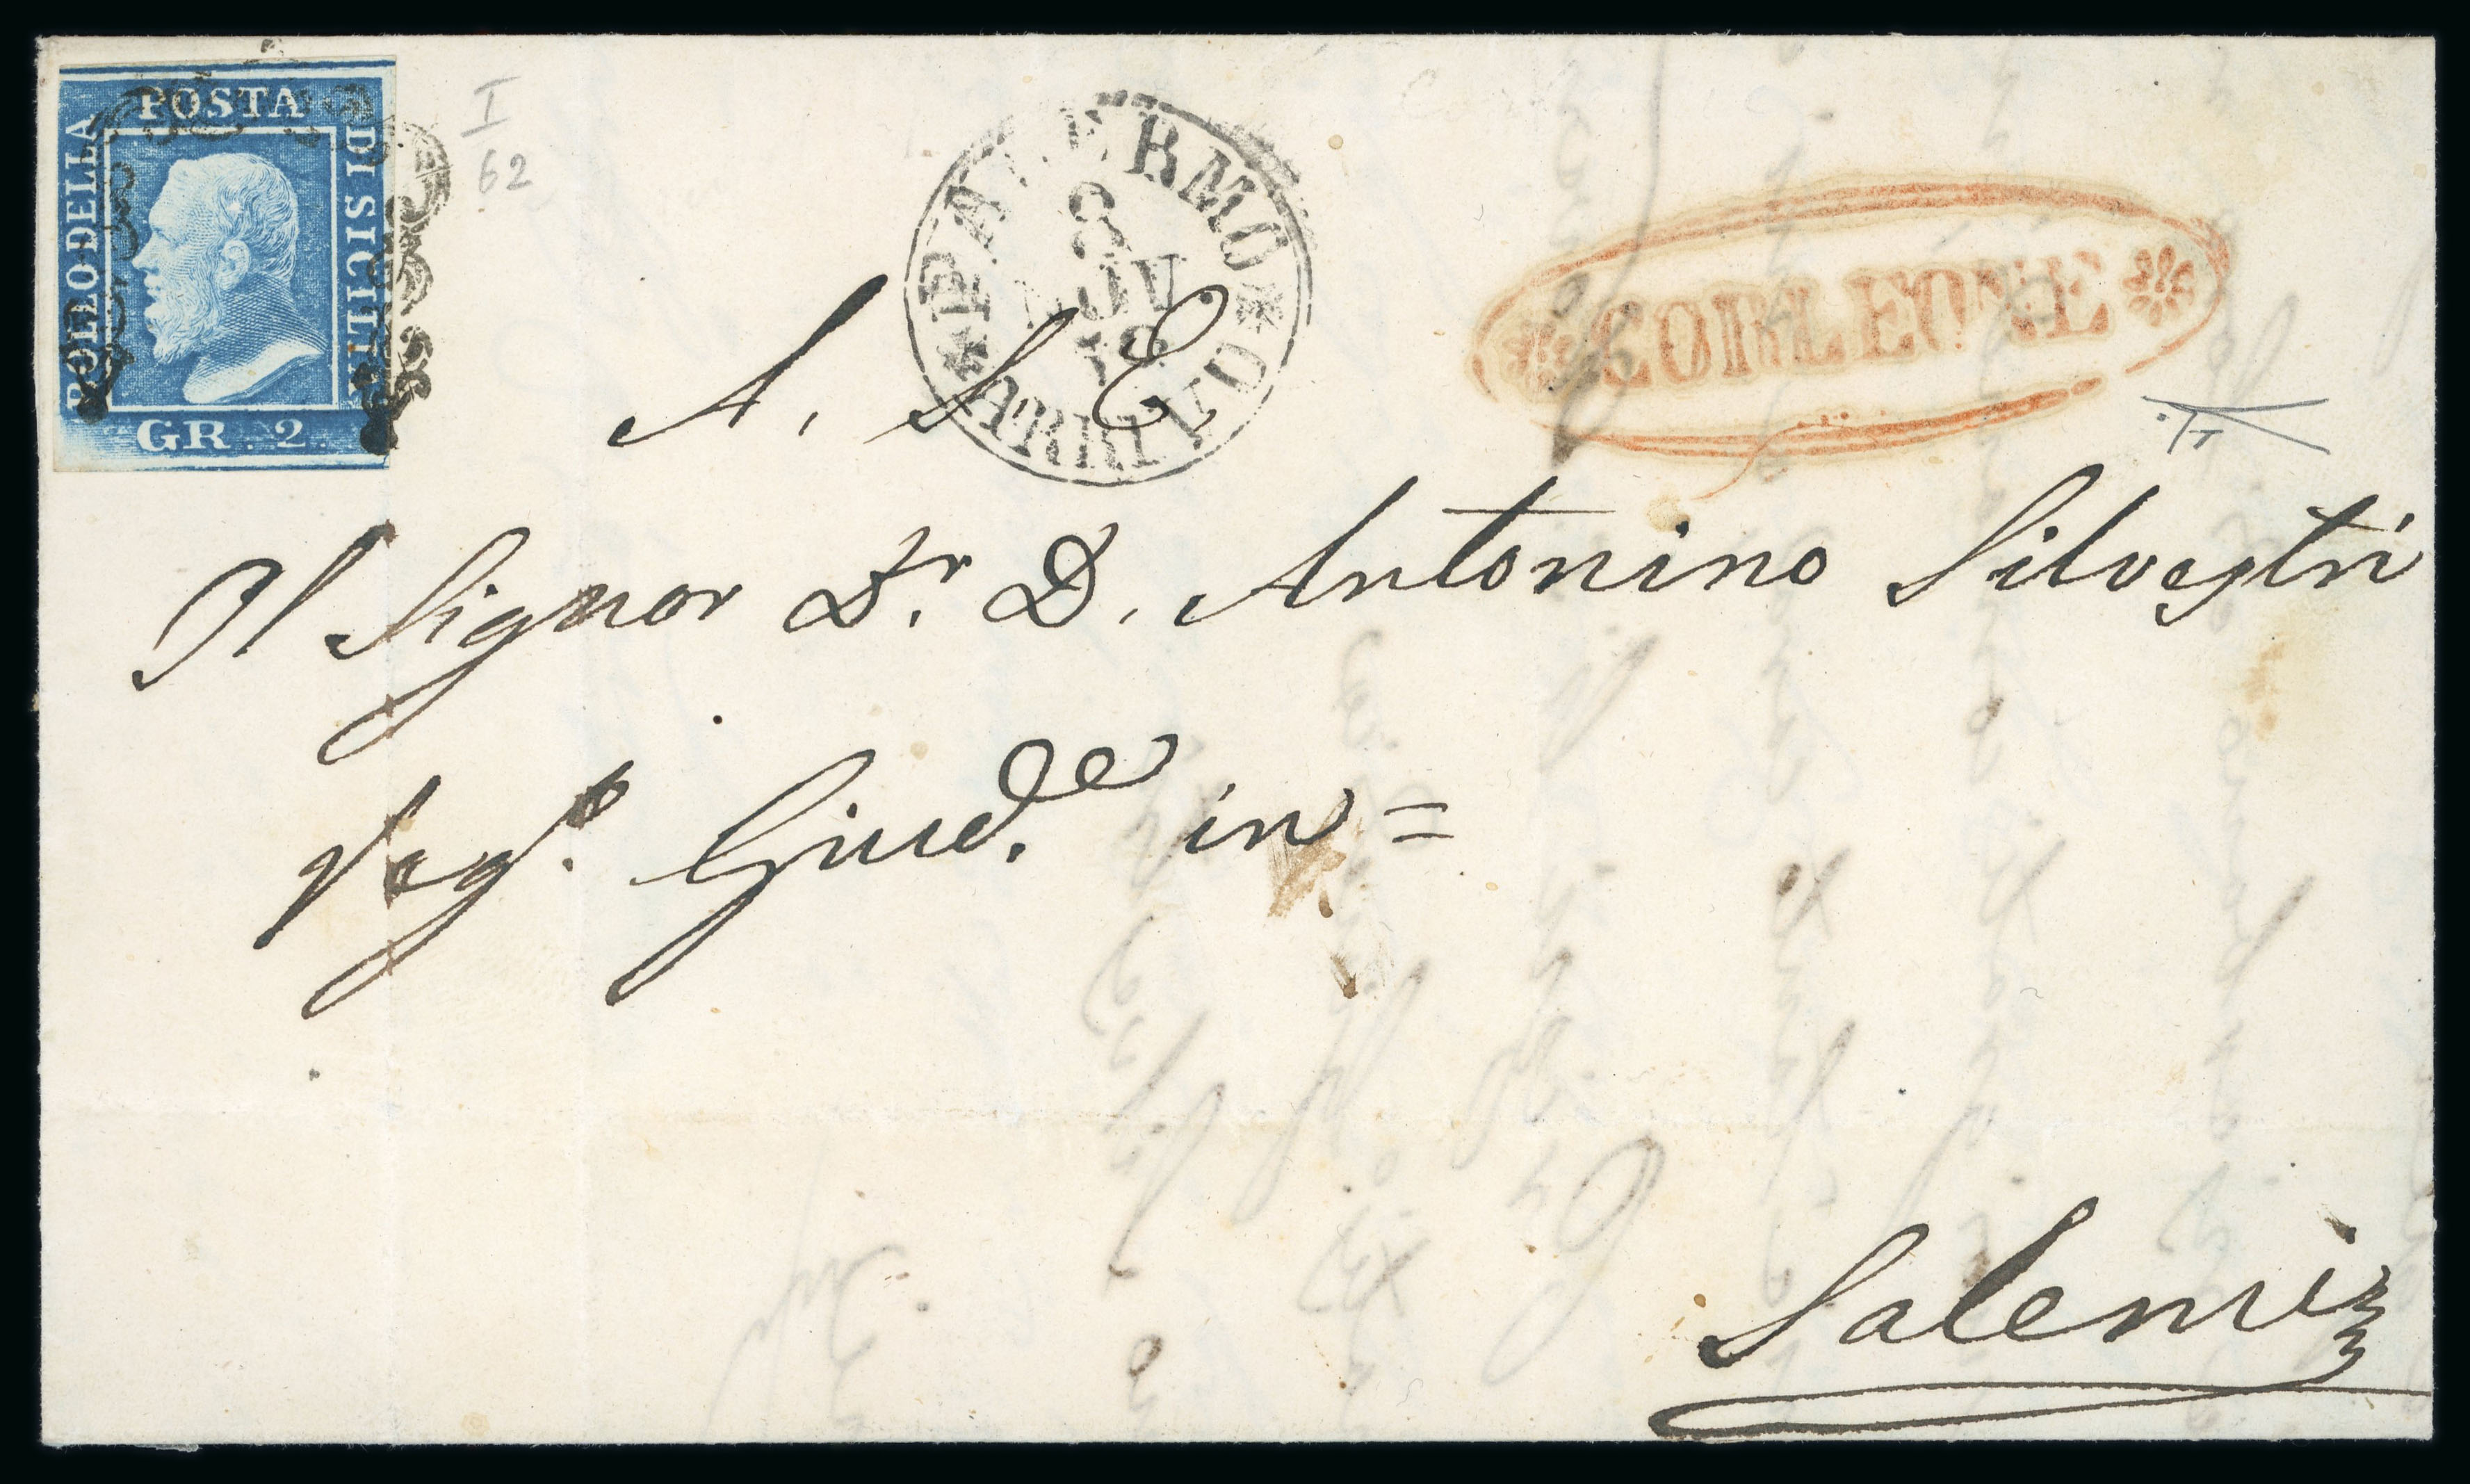 POSTA
BOLLO DELLA
DI SICILIA
GR. 2
I
62
PALERMO
8
NOV.
18
ARRIVO
CORLEONE
A. S. E.
Il Signor Dr. D. Antonino Silvestri
Giud.e in =
Salemi